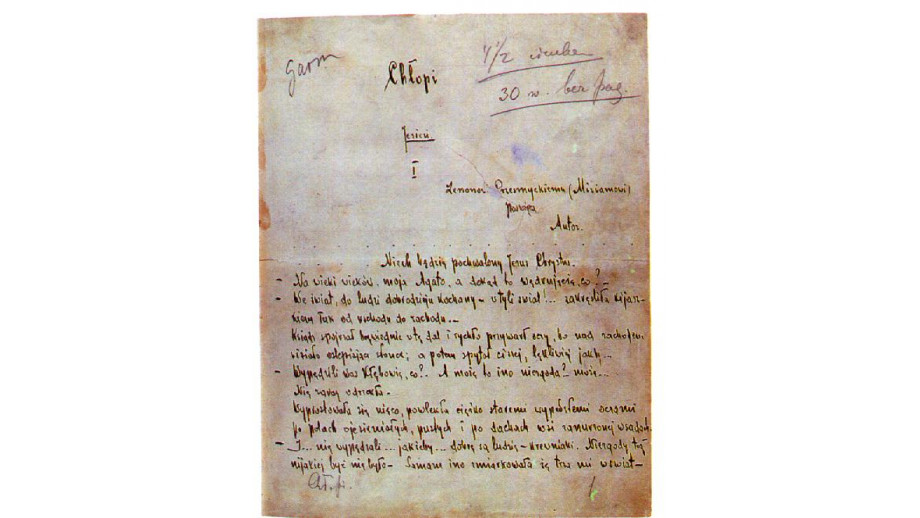 Garm
Chłopi
4 1/2 cicube
30 w. bez pag.
Jesień.
I
Zenonowi Przesmyckiemu (Miriamowi)
poświęca
Autor.
Niech będzie pochwalony Jezus Chrystus.
- Na wieki wieków, moja Agato, a dokąd to wędrujecie, co?
- We świat, do ludzi dobrodzieju kochany - w tyli świat!... zakreśliła kijasz-
kiem łuk od wschodu do zachodu.-
Ksiądz spojrzał bezwiednie w tę dal i rychło przywarł oczy, bo nad zachodem
wisiało oślepiające słońce; a potem spytał ciszej, lękliwiej jakby...
- Wypędzili was Kłębowie, co?. A może to ino niezgoda?.. może...
Nie zaraz odrzekła.-
Wyprostowała się nieco, powlekła ciężko staremi wypełzłemi oczami
po polach ojesieniałych, pustych i po dachach wsi zanurzonej w sadach.
- I... nie wypędzali... jakżeby... dobre są ludzie - krewniaki. Niezgody też
nijakiej być nie było - Samam ino zmiarkowała że trza mi w świat -
Chł. p.
1